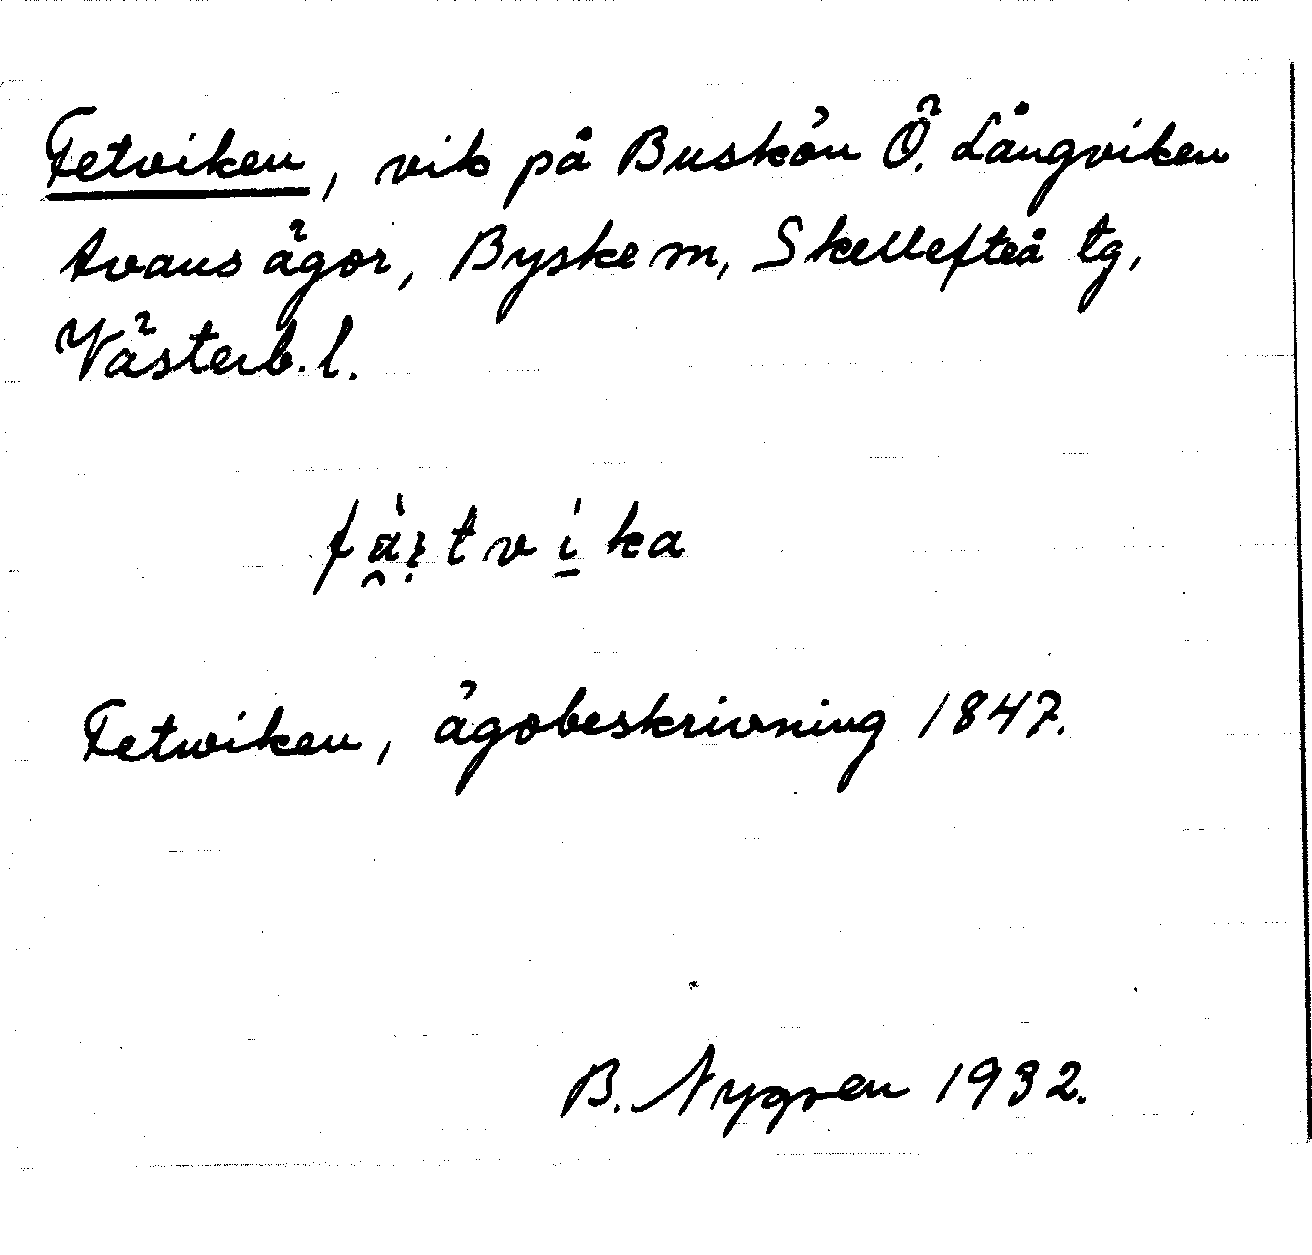 Fetviken, vik på Buskön Ö. Långviken
Avans ägor, Byske sn, Skellefteå tg,
Västerb. l.
Fetwiken, ägobeskrivning 1847.
B. Nygren 1932.